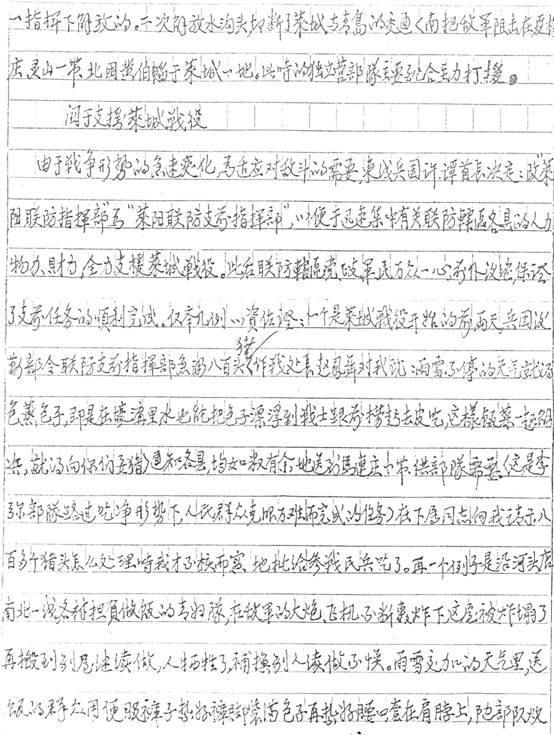 一指挥下解放的。二次解放水沟头切断了莱城与青岛的交通(南把敌军阻击在夏格
店、灵山一带,北困范伯韬于莱城一地。此时的独立营部队主要配合主力打援。
关于支援莱城战役
由于战争形势的急速变化,为适应对敌斗的需要,东线兵团许、谭首长决定:改“莱
阳联防指挥部”为“莱阳联防支前指挥部”,以便于迅速集中有关联防辖区各县的人力
物力、财力,全力支援莱城战役。此后联防辖区党、政、军、民万众一心,前仆后继,保证
了支前任务的顺利完成。仅举几例以资佐证:一个是莱城战役开始的前两天,兵团政
部令联防支前指挥部急筹八百头猪(作战处长赵凤舞对我说:雨雪不停的天气就得
包蒸包子,即是在壕沟里水也能把包子漂浮到战士跟前捞起去皮吃,这样饭菜一起解
决,就得向你们要猪)通知各县,均如数有余地送到马连庄一带,供部队需要(这是李
弥部队路过吃净形势下,人民群众克服万难而完成的任务)在下属同志们向我请示八
百多个猪头怎么处理时我才不按而实地批给参战民兵吃了。再一个例子是沿河头店
南北一线各村担负做饭的青妇队,在敌军的大炮、飞机不断轰炸下这屋被炸塌了
再搬到别屋继续做,人牺牲了,补换别人续做不误。雨雪交加的天气里,送
饭的群众用便服裤子扎好裤脚装满包子再扎好腰口套在肩脖上,随部队攻